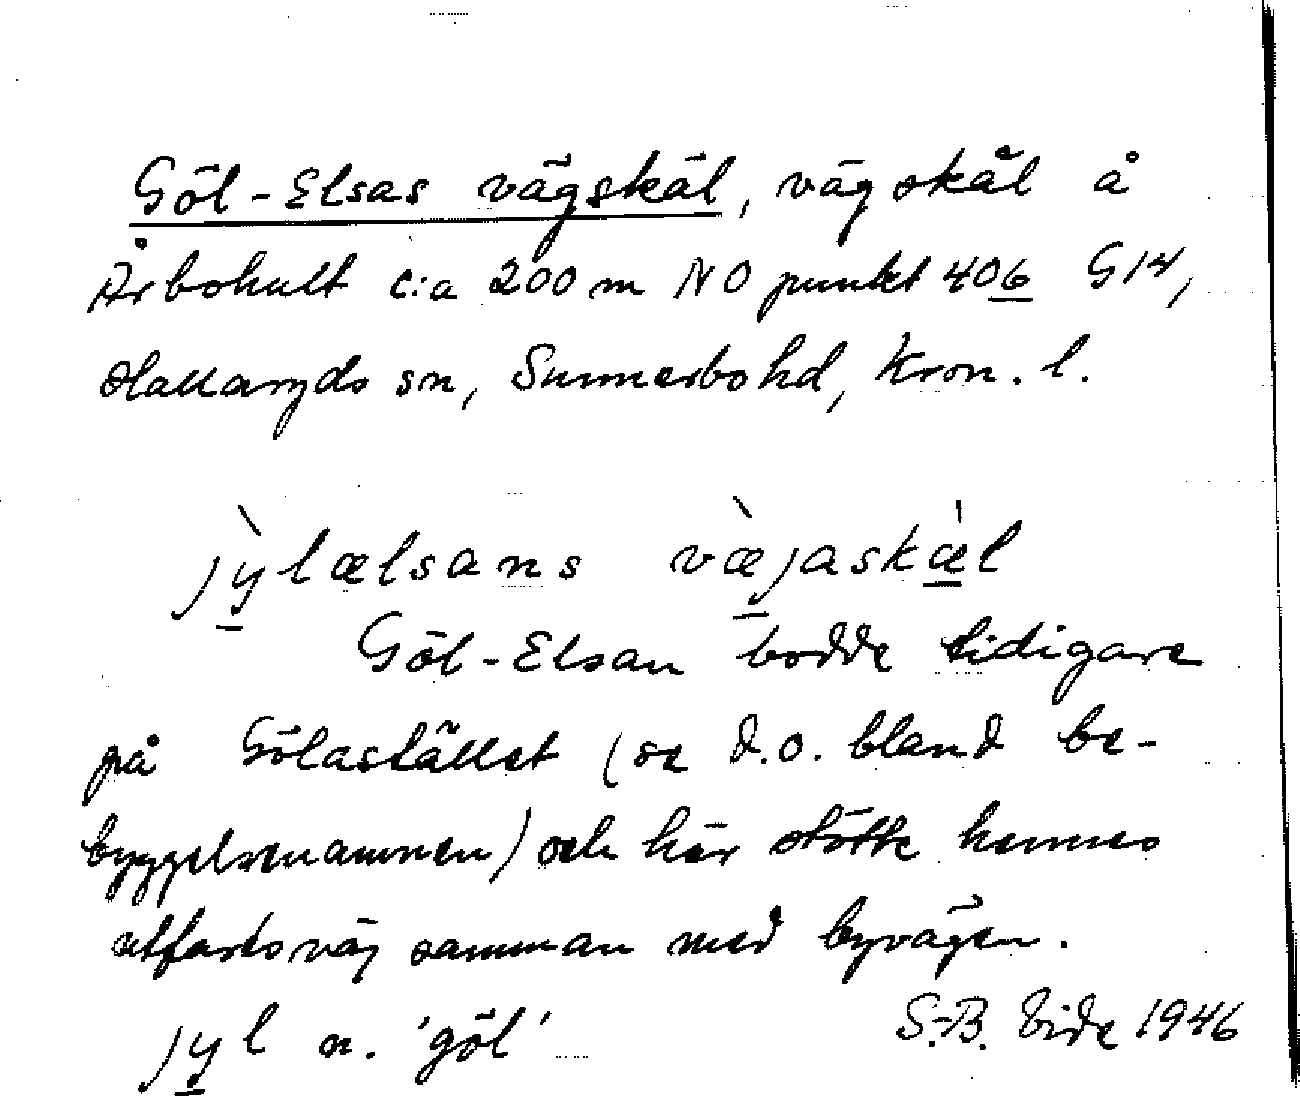 Göl-Elsas vägskäl, vägskäl å
Årbohult c:a 200 m NO punkt 406 G14,
Hallaryds sn, Sunnerbo hd, Kron. l.
jỳ̱lælsans væ̱̀jaskæ̱̀l
Göl-Elsan bodde tidigare
på Gölastället (se d.o. bland be-
byggelsenamnen) och här stötte hennes
utfartsväg samman med byvägen.
jy̱l n. 'göl'
S.-B. Vide 1946